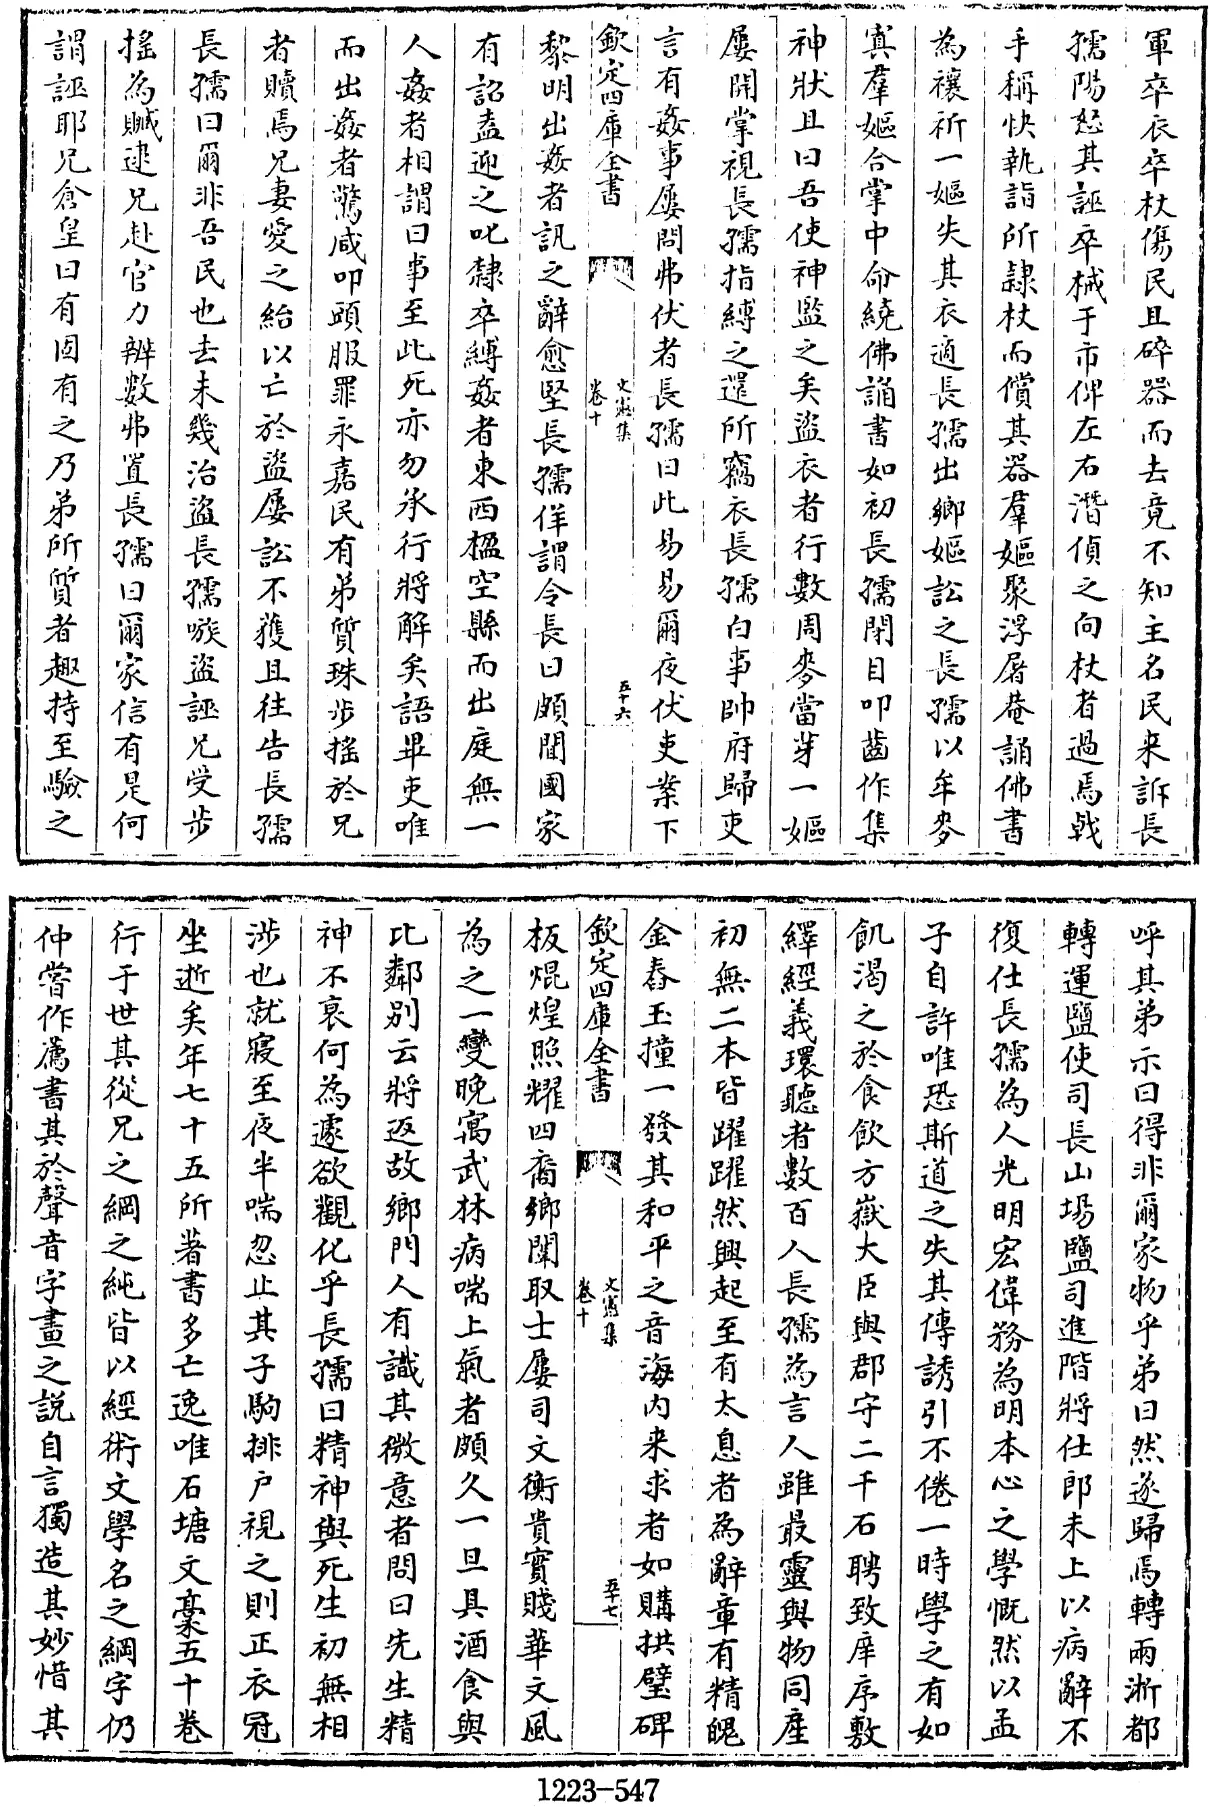 軍卒衣卒杖傷民且碎器而去竟不知主名民來訴長
孺陽怒其誣卒械于市俾左右潛偵之向杖者過焉戟
手稱快執詣所隷杖而償其器羣嫗聚浮屠菴誦佛書
為禳祈一嫗失其衣適長孺出鄉嫗訟之長孺以牟麥
寘羣嫗合掌中命繞佛誦書如初長孺閉目叩齒作集
神狀且曰吾使神監之矣盜衣者行數周麥當芽一嫗
屢開掌視長孺指縛之還所竊衣長孺白事帥府歸吏
言有姦事屢問弗伏者長孺曰此易易爾夜伏吏案下
欽定四庫全書
文憲集
卷十
五十六
黎明出姦者訊之辭愈堅長孺佯謂令長曰頗聞國家
有詔盍迎之叱隸卒縛姦者東西楹空縣而出庭無一
人姦者相謂曰事至此死亦勿承行將解矣語畢吏唯
而出姦者驚咸叩頭服罪永嘉民有弟質珠步揺於兄
者贖焉兄妻愛之紿以亡於盜屢訟不獲且往告長孺
長孺曰爾非吾民也去未幾治盜長孺嗾盜誣兄受步
揺為贓逮兄赴官力辨數弗置長孺曰爾家信有是何
謂誣耶兄倉皇曰有固有之乃弟所質者趣持至驗之
呼其弟示曰得非爾家物乎弟曰然遂歸焉轉兩浙都
轉運鹽使司長山塲鹽司進階將仕郎未上以病辭不
復仕長孺為人光明宏偉務為明本心之學慨然以孟
子自許唯恐斯道之失其傳誘引不倦一時學之有如
飢渴之於食飲方嶽大臣與郡守二千石聘致庠序敷
繹經義環聽者數百人長孺為言人雖最靈與物同産
初無二本皆躍躍然興起至有太息者為辭章有精魄
金舂玉撞一發其和平之音海内来求者如購拱璧碑
欽定四庫全書
文憲集
卷十
五十七
板焜煌照耀四裔鄉闈取士屢司文衡貴實賤華文風
為之一變晩寓武林病喘上氣者頗久一旦具酒食與
比鄰别云將返故鄉門人有識其微意者問曰先生精
神不衰何為遽欲觀化乎長孺曰精神與死生初無相
涉也就寢至夜半喘忽止其子駒排户視之則正衣冠
坐逝矣年七十五所著書多亡逸唯石塘文稾五十卷
行于世其從兄之綱之純皆以經術文學名之綱字仍
仲嘗作薦書其於聲音字畫之説自言獨造其妙惜其
1223-547